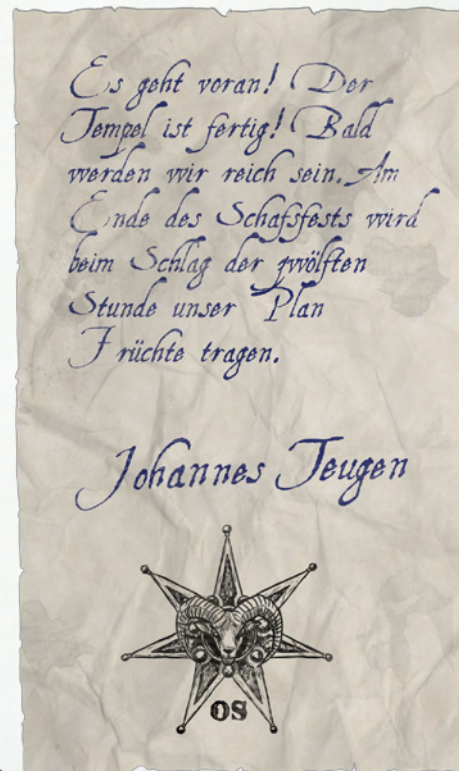 Es geht voran! Der
Tempel ist fertig! Bald
werden wir reich sein. Am
Ende des Schafsfests wird
beim Schlag der zwölften
Stunde unser Plan
Früchte tragen.
Johannes Teugen
OS